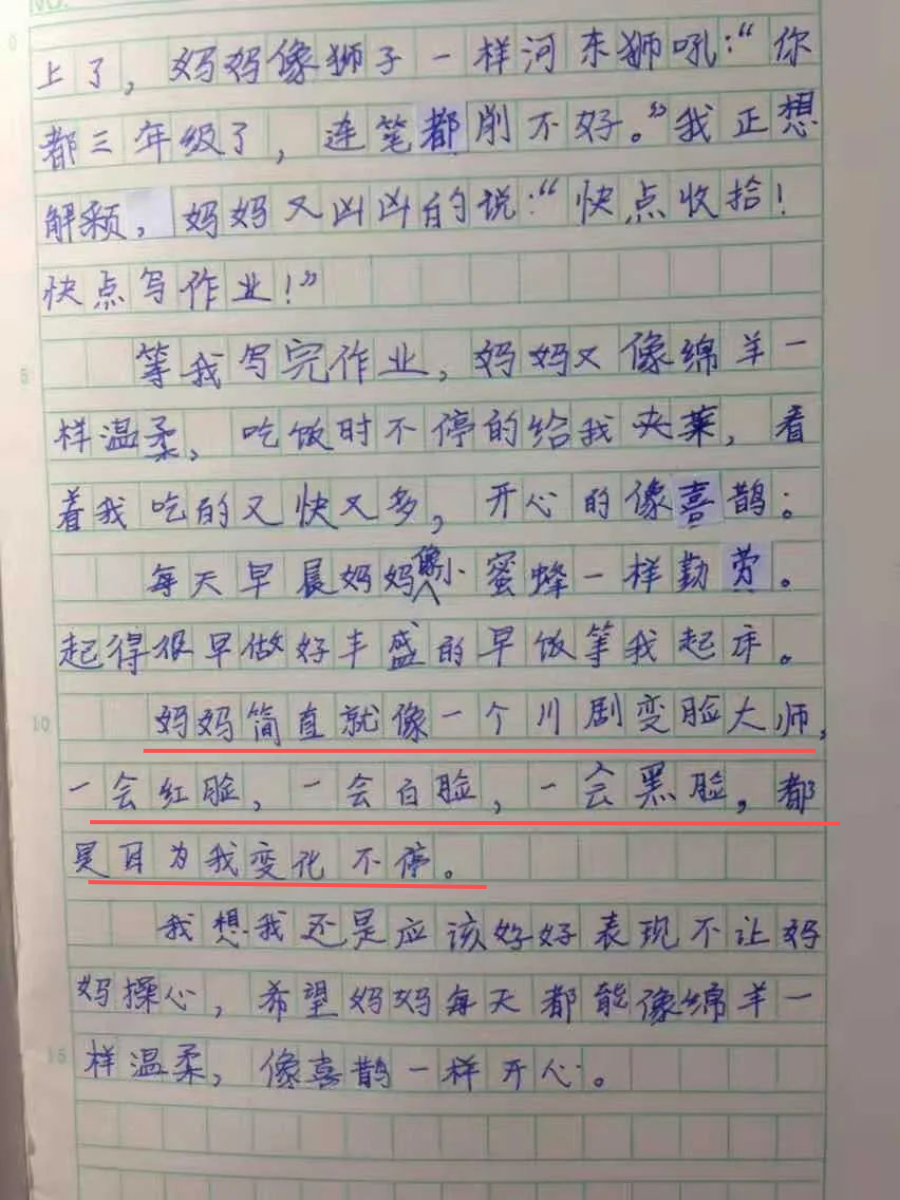 上了，妈妈像狮子一样河东狮吼：“你
都三年级了，连笔都削不好。”我正想
解释，妈妈又凶凶的说：“快点收拾！
快点写作业！”
等我写完作业，妈妈又像绵羊一
样温柔，吃饭时不停的给我夹菜，看
着我吃的又快又多，开心的像喜鹊。
每天早晨妈妈像小蜜蜂一样勤劳。
起得很早做好丰盛的早饭等我起床。
妈妈简直就像一个川剧变脸大师，
一会红脸，一会白脸，一会黑脸，都
是因为我变化不停。
我想我还是应该好好表现不让妈
妈操心，希望妈妈每天都能像绵羊一
样温柔，像喜鹊一样开心。
5
10
15